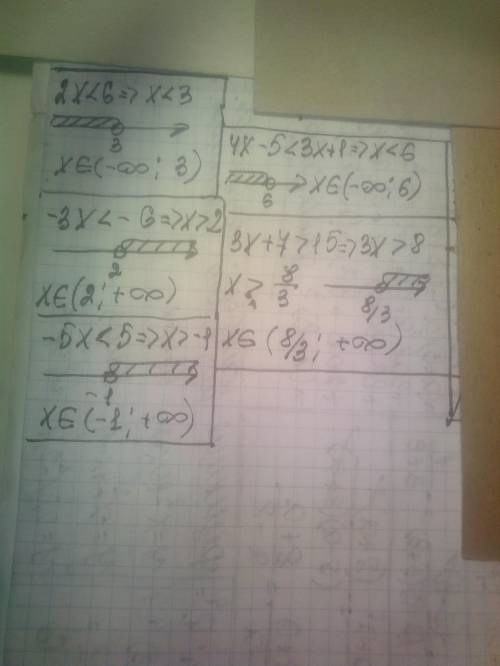 2x<6=>x<3
3
x∈(-∞; 3)
-3x<-6=>x>2
2
x∈(2;+∞)
-5x<5=>x>-1
-1
x∈(-1;+∞)
4x-5<3x+1=>x<6
6
x∈(-∞;6)
3x+7>15=>3x>8
x> 8/3
8/3
x∈(8/3; +∞)